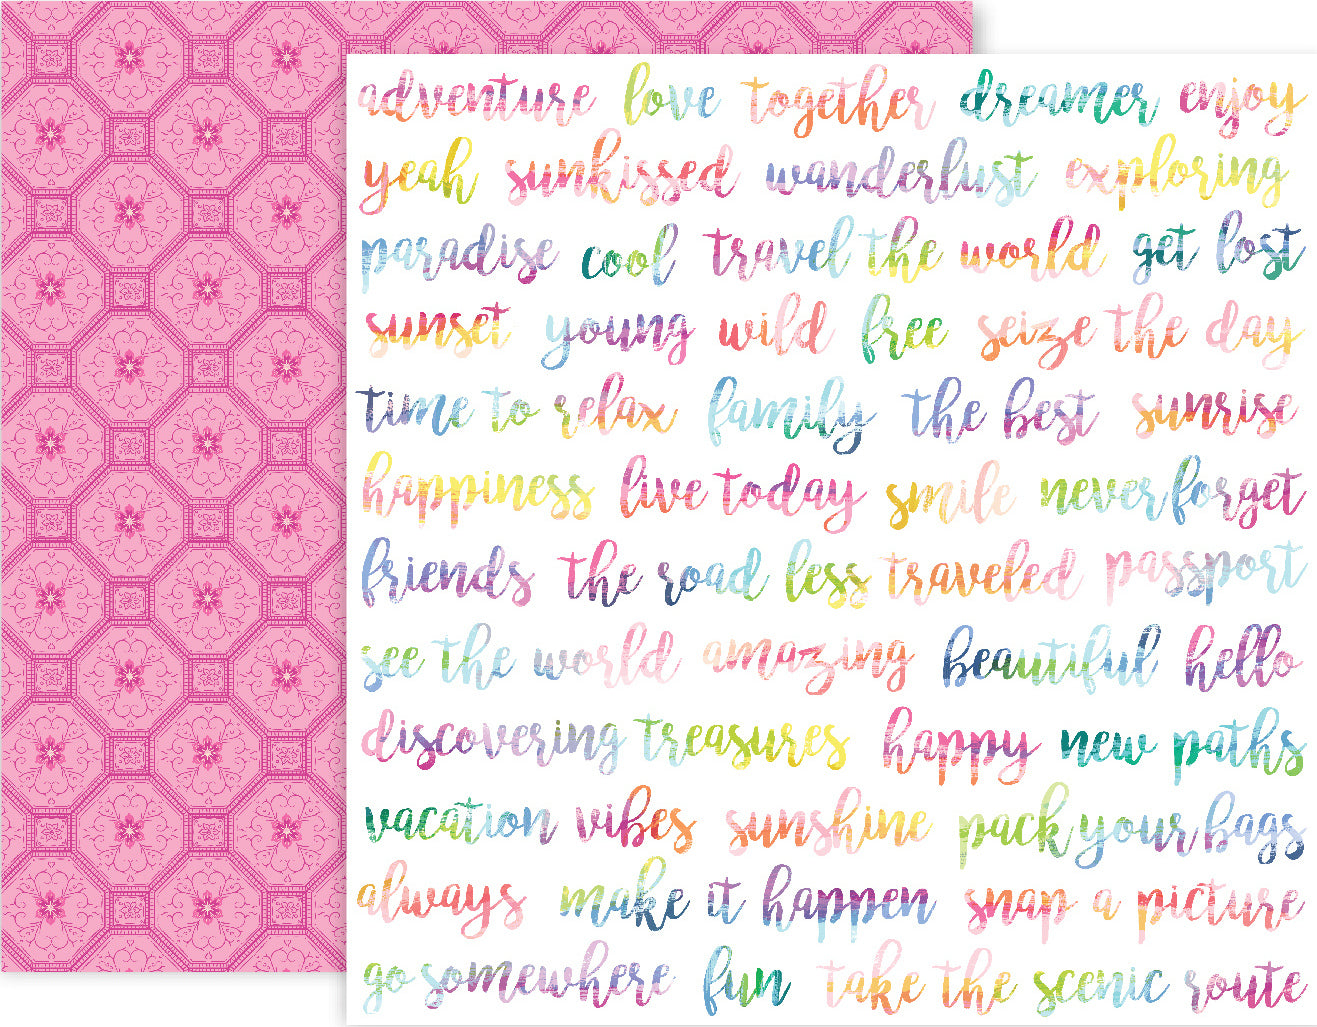 adventure love together dreamer enjoy
yeah sunkissed wanderlust exploring
paradise cool travel the world get lost
sunset young wild free seize the day
time to relax family the best sunrise
happiness live today smile never forget
friends the road less traveled passport
see the world amazing beautiful hello
discovering treasures happy new paths
vacation vibes sunshine pack your bags
always make it happen snap a picture
go somewhere fun take the scenic route